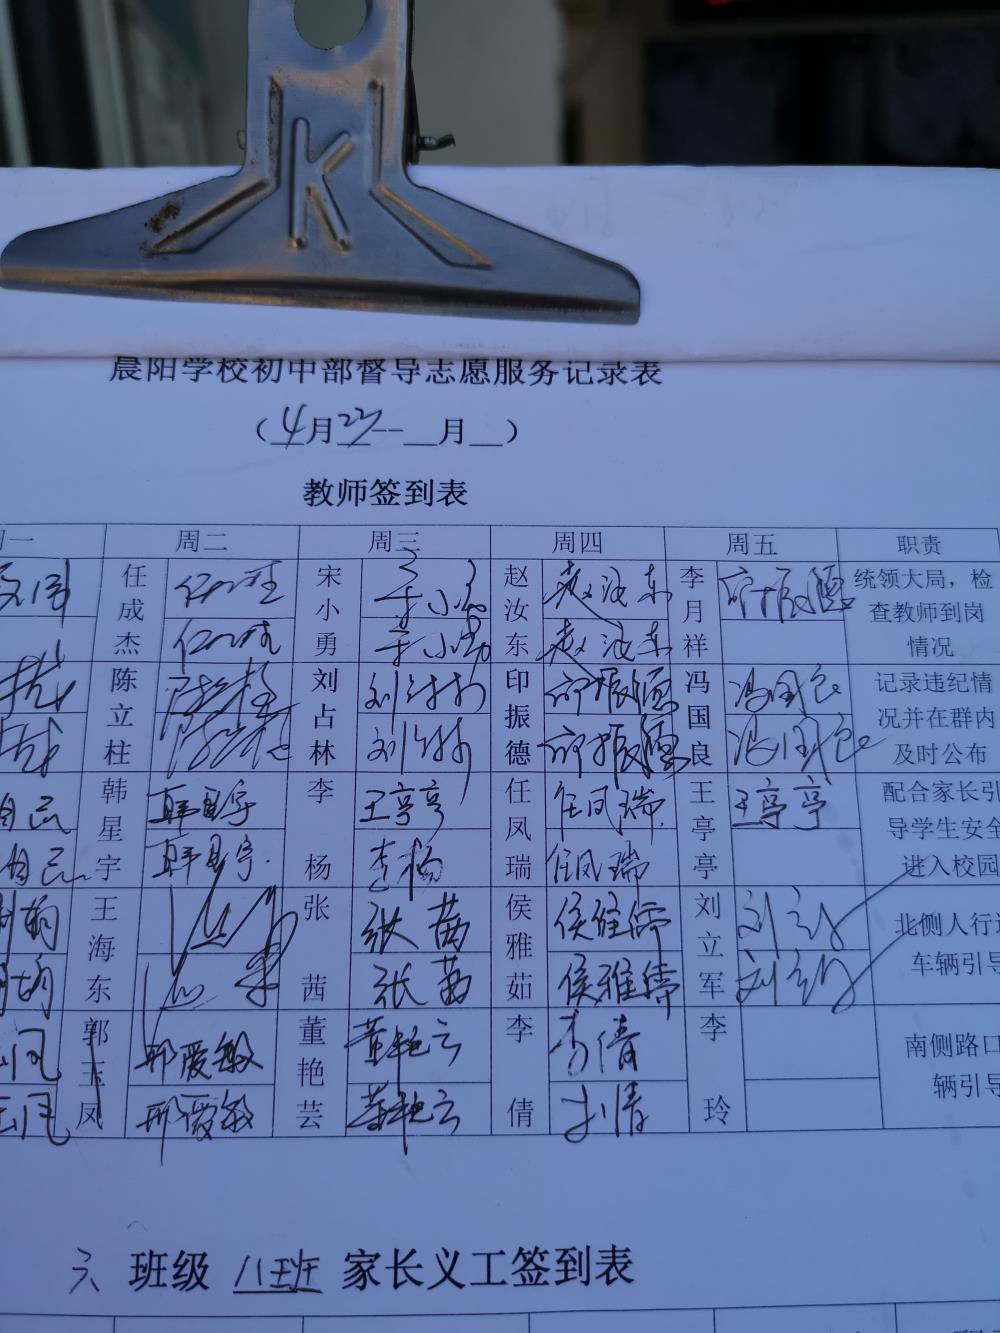 K
晨阳学校初中部督导志愿服务记录表
（4月22--__月__）
教师签到表
周一 周二 周三 周四 周五 职责
任成杰 宋小勇 赵汝东 赵汝东 李月祥 印振德 统领大局，检查教师到岗情况
宋小勇 赵汝东
陈立柱 刘占林 刘占林 印振德 印振德 冯国良 冯国良 记录违纪情况并在群内及时公布
刘占林 印振德 冯国良
韩星宇 韩星宇 李杨 王亭亭 任凤瑞 任凤瑞 王亭亭 王亭亭 配合家长引导学生安全进入校园
韩星宇 李杨 任凤瑞
王海东 张茜 张茜 侯雅茹 刘立军 北侧人行 车辆引导
张茜
郭玉凤 邢爱敏 董艳芸 董艳云 李倩 李倩 李玲 南侧路口 辆引导
邢爱敏 董艳云 李倩
六 班级 八班 家长义工签到表